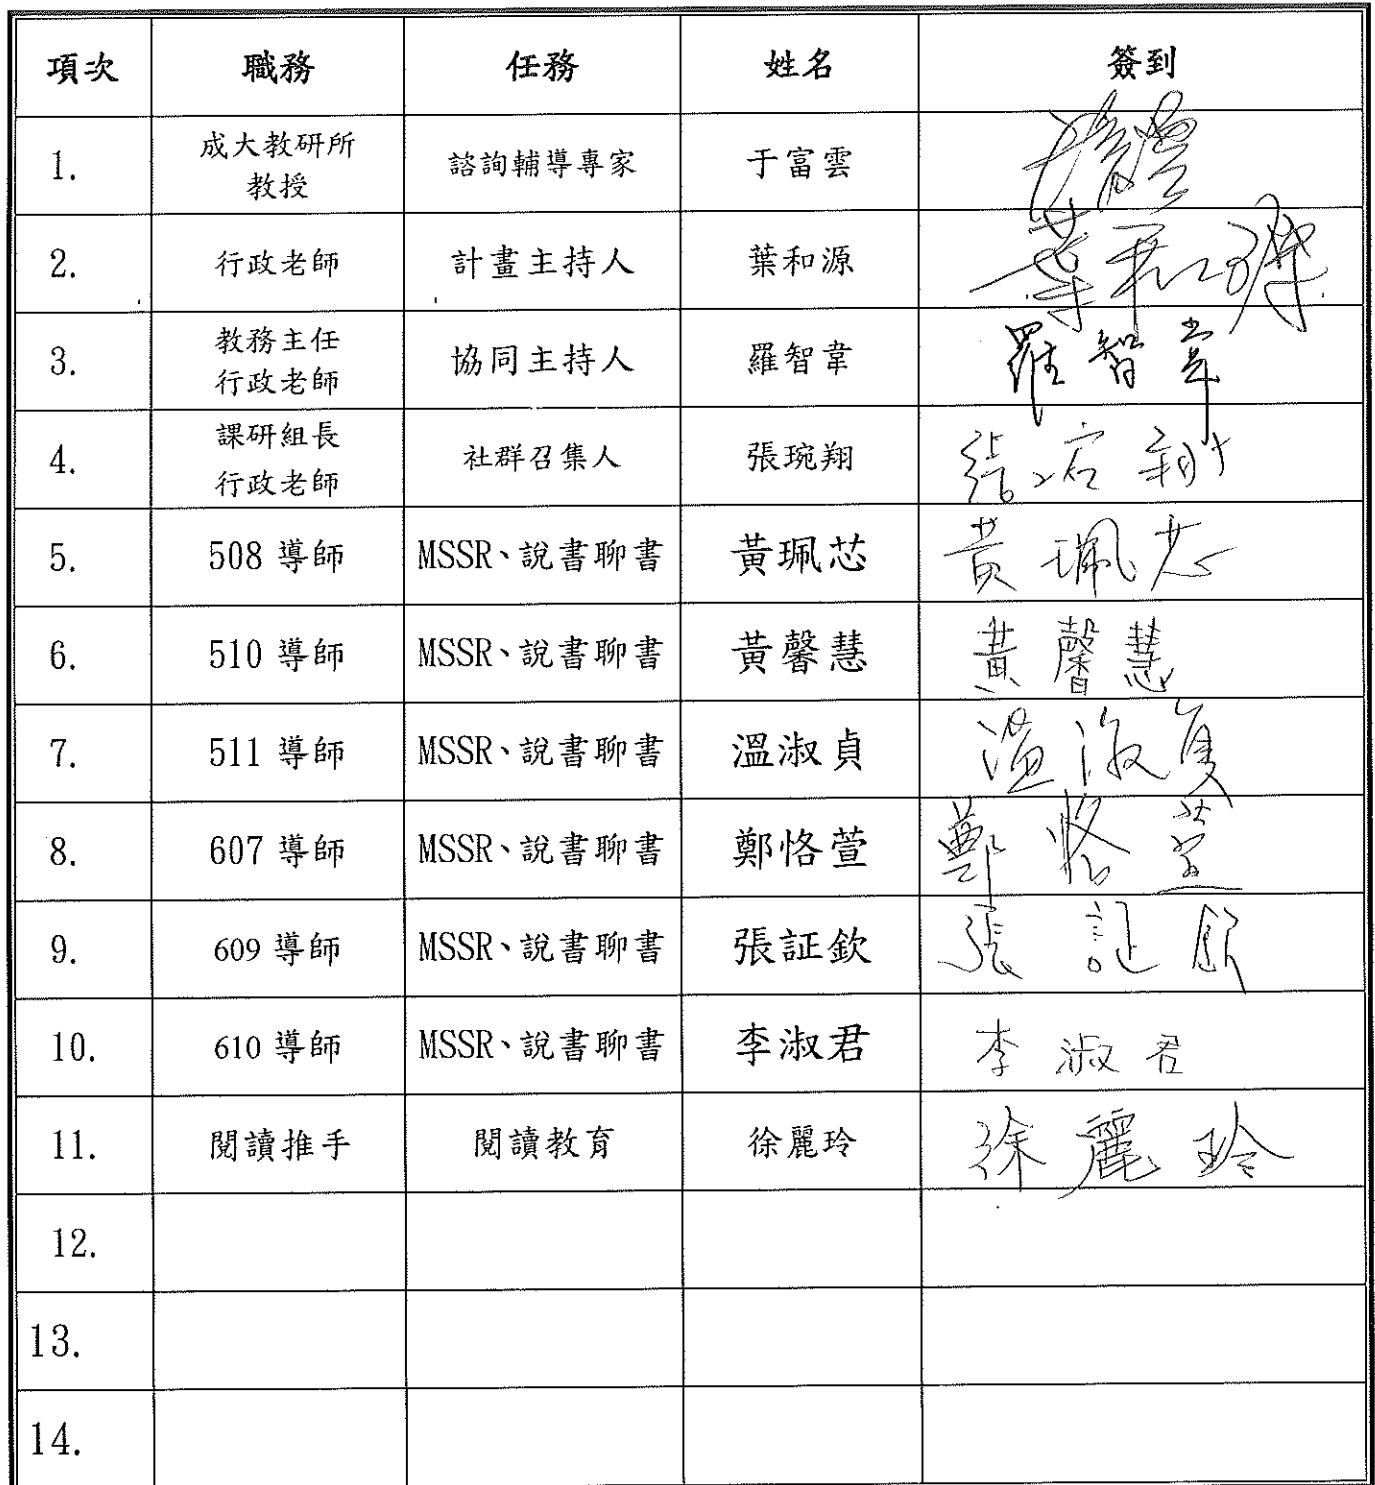 項次 職務 任務 姓名 簽到
1. 成大教研所 諮詢輔導專家 于富雲
教授
2. 行政老師 計畫主持人 葉和源 葉和源
3. 教務主任 協同主持人 羅智韋 羅智韋
行政老師
4. 課研組長 社群召集人 張琬翔 張琬翔
行政老師
5. 508 導師 MSSR、說書聊書 黃珮芯 黃珮芯
6. 510 導師 MSSR、說書聊書 黃馨慧 黃馨慧
7. 511 導師 MSSR、說書聊書 溫淑貞 溫淑貞
8. 607 導師 MSSR、說書聊書 鄭恪萱 鄭恪萱
9. 609 導師 MSSR、說書聊書 張証欽 張証欽
10. 610 導師 MSSR、說書聊書 李淑君 李淑君
11. 閱讀推手 閱讀教育 徐麗玲 徐麗玲
12.
13.
14.